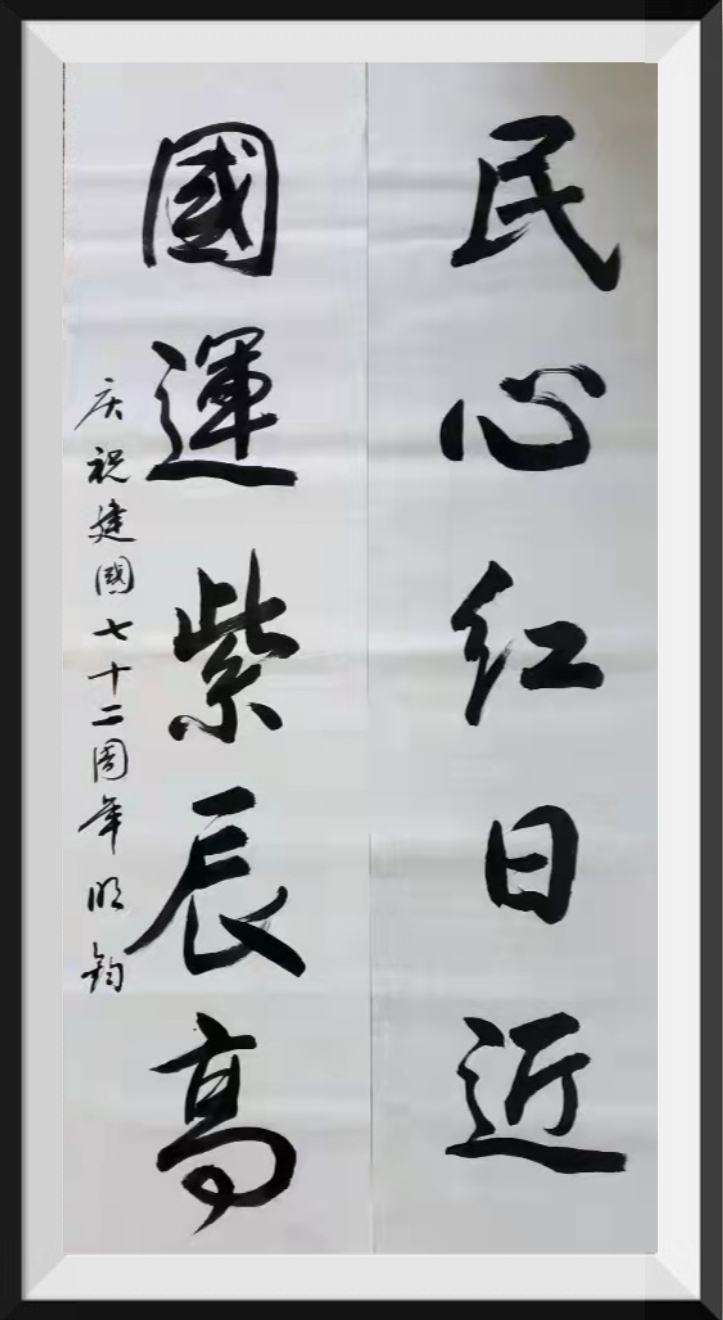 民心红日近
國運紫辰高
庆祝建國七十二周年明鈞